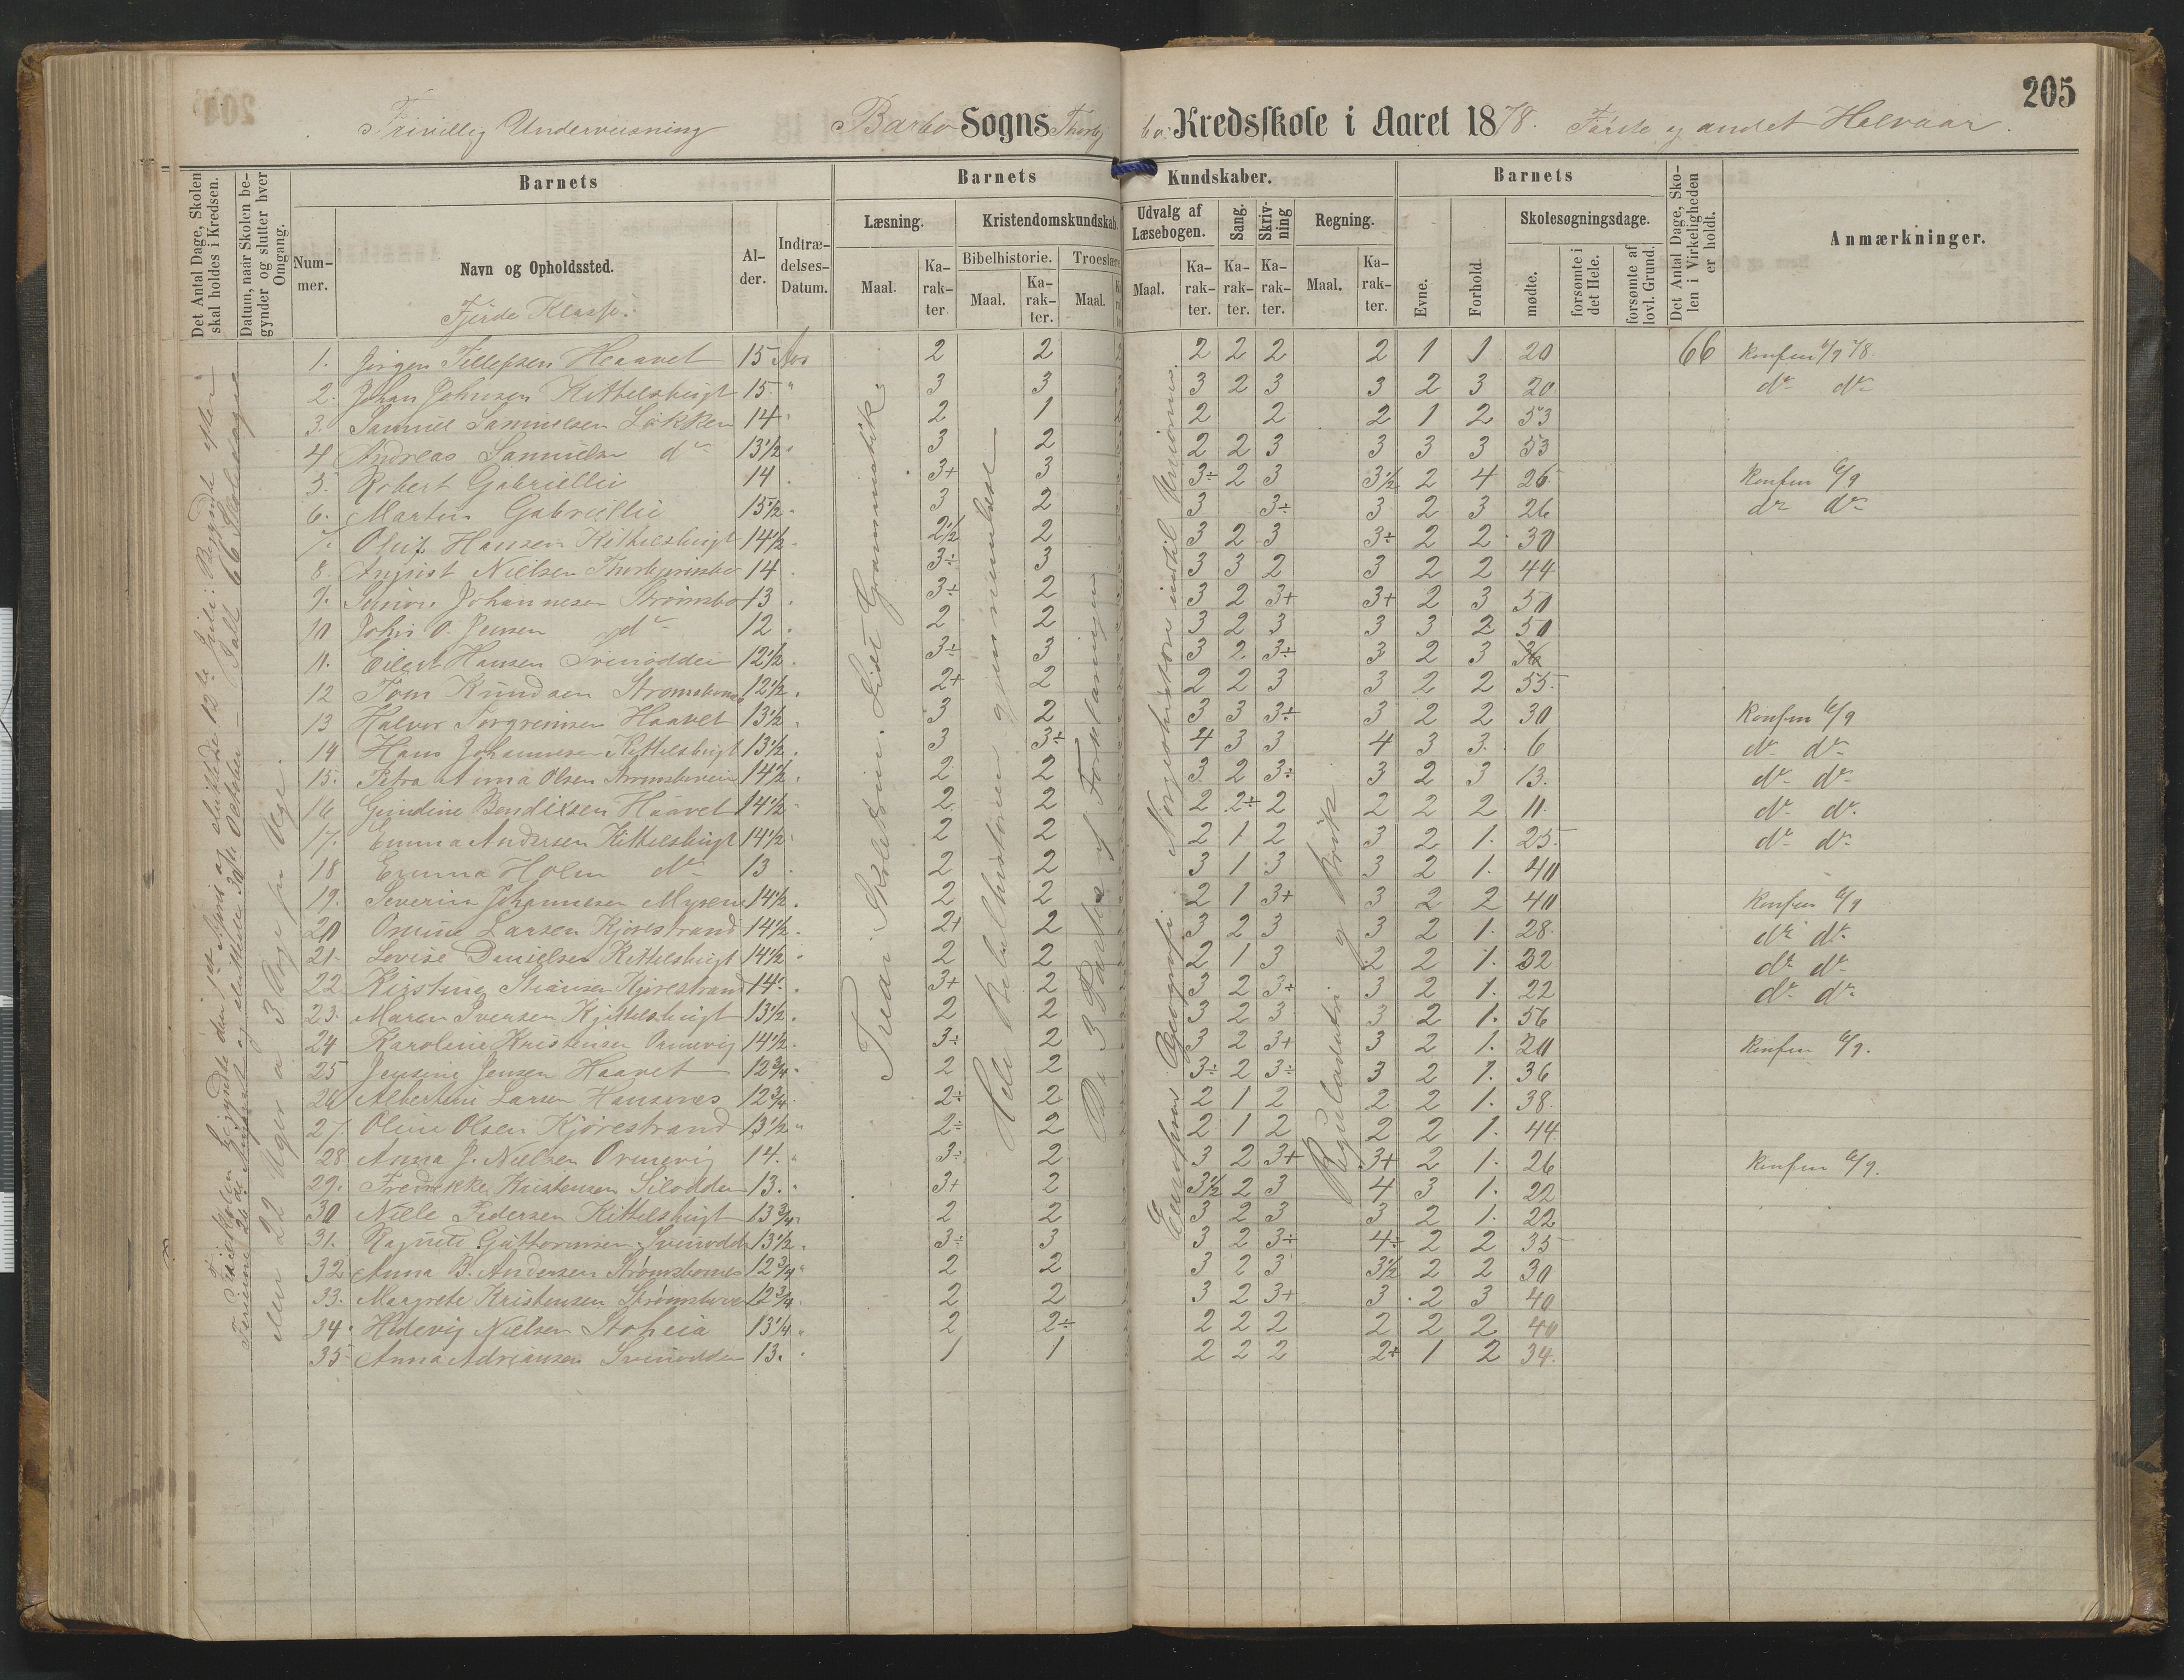 205
Frivillig Underviisning Barbo Sogns Thorbj bo. Kredsskole i Aaret 1878. Første og andet Halvaar.
Det Antal Dage, Skolen skal holdes i Kredsen.
Datum, naar Skolen begynder og slutter hver Omgang.
Barnets
Nummer.
Navn og Opholdssted.
Fjerde Klasse.
Alder.
Indtrædelses-Datum.
Barnets Kundskaber.
Læsning.
Maal.
Karakter
Kristendomskundskab.
Bibelhistorie.
Maal.
Karakter.
Troeslære
Maal.
Udvalg af Læsebogen.
Maal.
Karakter.
Sang.
Karakter.
Skrivning
Karakter.
Regning.
Maal.
Karakter.
Barnets
Evne.
Forhold.
Skolesøgningsdage.
mødte.
forsømte i det Hele.
forsømte af lovl. Grund.
Det Antal Dage, Skolen i Virkeligheden er holdt.
Anmærkninger.
1. Jørgen Tellefsen Haavet 15 Aar 2 2 2 2 2 2 1 1 20 66 Konfirm 6/9 78.
2. Johan Johnsen Kittelsbugt 15 " 3 3 3 2 3 3 2 3 20 do do
3. Samuel Samuelsen Løkken 14 2 1 2 2 2 1 2 53
4 Andreas Samuelsen do 13½ 3 2 2 2 3 3 3 3 53
5. Robert Gabriellii 14 3+ 3 3÷ 2 3 3½ 2 4 26 Konfirm 6/9
6. Martin Gabriellii 15½ 3 2 3 3÷ 3 2 3 26 do do
7. Oluf Hansen Kittelsbugt 14½ 2½ 2 3 2 3 3÷ 2 2 30
8. August Nielsen Thorbjørnsbo 14 3÷ 3 3 3 2 3 2 2 44
9. Johannesen Strømsbo 13 3÷ 2 3 2 3+ 3+ 2 3 50
10 John O. Jensen do 12 2 2 3 2 3 3 3 2 50
11. Eilert Hansen Svinodden 12½ 3÷ 3 3 2 3÷ 3 2 3 36
12 Tom Knudsen Strømsbones 12½ 2+ 2 2 2 3 3 2 2 55
13 Halvor Torgrimsen Haavet 13½ 3 2 3 3 3÷ 3 2 2 30 Konfirm 6/9
14 Hans Johannesen Kittelsbugt 13½ 3 3÷ 4 3 3 4 3 3 6 do do
15. Petra Anna Olsen 14½ 2 2 3 2 3÷ 3 2 3 13. do do
16 Gundine Bendixsen Haavet 14½ 2 2 2 2÷ 2 2 2 2 11. do do
17. Emma Andersen Kittelsbugt 14½ 2 2 2 1 2 3 2 1. 25 do do
18 Emma Holm do 13 2 2 3 1 3 3 2 1. 40
19. Severin Johannesen Myrene 14½ 2 2 2 1 3+ 3 2 2 40 Konfirm 6/9
20 Larsen Kjørestrand 14½ 2+ 2 3 2 3 3 2 1. 28 do do
21. Lovise Danielsen Kittelsbugt 14½ 2 2 2 1 3 2 2 1. 32 do do
22 Kirstine Kjørestrand 14 3+ 2 3 2 3+ 3 2 1. 22 do do
23. Maren Ivensen Kjittelsbugt 13½ 2 2 3 2 3 3 2 1. 56
24 Karoline Kristensen Ormevig 14½ 3÷ 2 3 2 3+ 3 2 1. 20 Konfirm 6/9.
25 Jensine Jensen Haavet 12¾ 2 2 3÷ 2 3÷ 3 2 1. 36
26 Albertine Larsen Hansenes 12¾ 2÷ 2 2 1 2 2 2 1. 38
27 Oline Olsen Kjørestrand 13½ 2÷ 2 2 1 2 2 2 1. 44
28 Anna J. Nielsen Ormevig 14. 3÷ 2 3 2 3+ 3+ 2 1. 26 Konfirm 6/9.
29. Fredrikke Kristensen Silodden 13. 3+ 2 3½ 2 3 4 3 1. 22
30 Nille Pedersen Kittelsbugt 13¾ 2 2 3 2 3 3 2 1. 22
31. Ragnete Guttormsen Svinodden 13½ 3÷ 3 3 2 3÷ 4÷ 2 2 35
32 Anna B. Andersen Strømsbones 12¾ 2 2 3 2 3 3½ 2 2 30
33. Margrete Kristensen Strømsbo 12¾ 2 2 3 2 3+ 3 2 3 40
34. Hedevig Nielsen Stoheia 13¼ 2 2÷ 2 2 2 2 2 2 40
35 Anna Adriansen Svinodden 13. 1 1 2 2 2 2÷ 1 2 34
Hele Bibelhistorien gjennemlæst
De 3 Parter af Forklaringen
Norgeshistorie indtil Unionen.
Europas Geografi.
Reguladetri og Brøk